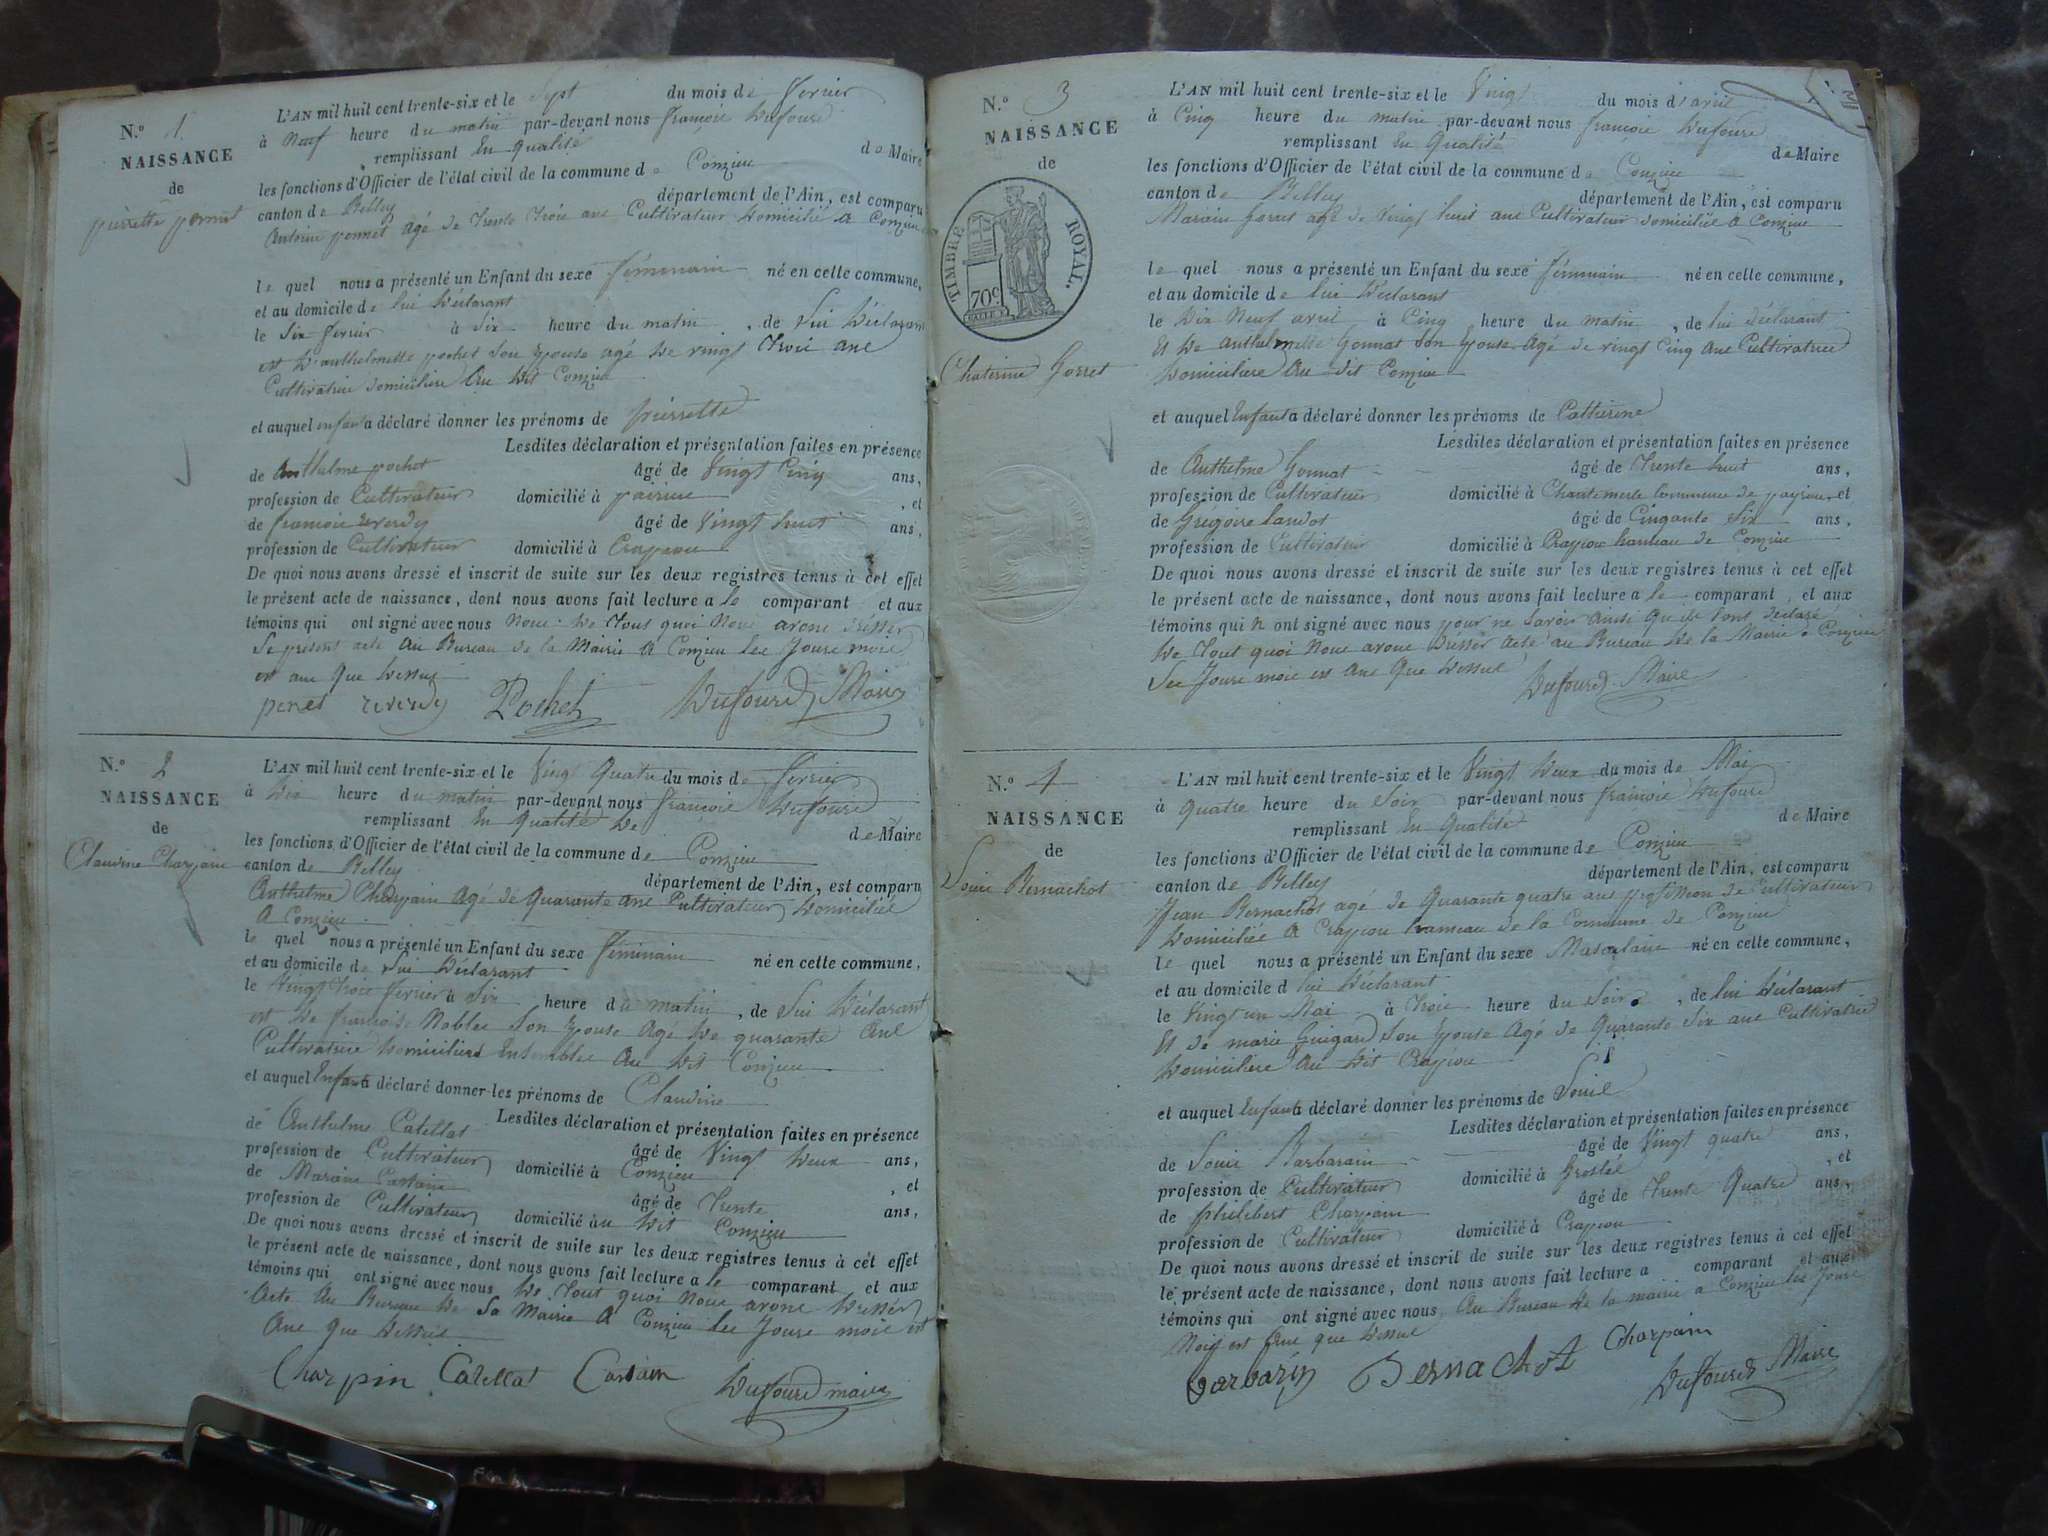 N.º 1.
NAISSANCE
de
pierrette ponnet
L'AN mil huit cent trente-six et le Sept du mois de fevrier
à Neuf heure du matin par-devant nous françoie Dufourd
remplissant En qualité de Maire
les fonctions d'Officier de l'état civil de la commune de Conzieu
canton de Belley département de l'Ain, est comparu
Antoine ponnet agé de trente troie ans Cultivateur Domicilié a Conzieu
le quel nous a présenté un Enfant du sexe féminain né en cette commune,
et au domicile de lui Déclarant
le Six fevrier à Six heure du matin, de Lui Déclarant
et D'anthelmette pochet Son Epouse agé de vingt troie ans
Cultivatrice domicilière Au Dit Conzieu
et auquel enfant a déclaré donner les prénoms de pierrette
Lesdites déclaration et présentation faites en présence
de Anthelme pochet âgé de Vingt Cinq ans,
profession de Cultivateur domicilié à , et
de françoie reverdy âgé de Vingt huit ans,
profession de Cultivateur domicilié à Crapeou
De quoi nous avons dressé et inscrit de suite sur les deux registres tenus à cet effet
le présent acte de naissance, dont nous avons fait lecture a le comparant et aux
témoins qui ont signé avec nous Noue De tout quoi Noue avons dresser
Le présent acte Au Bureau de la Mairie A Conzieu lee Joure moie
et ane Que Dessue
penet reverdy Pochet Dufourd Maire
N.º 2
NAISSANCE
de
Claudine Charpain
L'AN mil huit cent trente-six et le Vingt Quatre du mois de fevrier
à Dix heure du matin par-devant nous françoie Dufourd
remplissant En Qualité De de Maire
les fonctions d'Officier de l'état civil de la commune de Conzieu
canton de Belley département de l'Ain, est comparu
Anthelme Charpain Agé de Quarante ane Cultivateur Domicilié
A Conzieu
le quel nous a présenté un Enfant du sexe féminain né en cette commune,
et au domicile de Lui Déclarant
le Vingt troie fevrier à Six heure du matin, de Lui Déclarant
et De françoise Noblee Son Epouse Agé De quarante Ane
Cultivatrice Domicilière Ensemblee Au Dit Conzieu
et auquel Enfant a déclaré donner les prénoms de Claudine
Lesdites déclaration et présentation faites en présence
de Anthelme Catellat âgé de Vingt Deux ans,
profession de Cultivateur domicilié à Conzieu , et
de Marain âgé de Trente ans,
profession de Cultivateur domicilié au Dit Conzieu
De quoi nous avons dressé et inscrit de suite sur les deux registres tenus à cet effet
le présent acte de naissance, dont nous avons fait lecture a le comparant et aux
témoins qui ont signé avec nous De Tout quoi Noue avons Dresser
Acte Au Bureau De La Mairie A Conzieu lee Joure moie et
Ane Que Dessue
Charpin Catellat Dufourd maire
N.º 3
NAISSANCE
de
TIMBRE ROYAL.
70c
Chaterine Gorret
L'AN mil huit cent trente-six et le Vingt du mois d'avril
à Cinq heure du matin par-devant nous françoie Dufourd
remplissant En Qualité de Maire
les fonctions d'Officier de l'état civil de la commune de Conzieu
canton de Belley département de l'Ain, est comparu
Marain Gorret agé de Vingt huit ane Cultivateur domicilié a Conzieu
le quel nous a présenté un Enfant du sexe féminain né en cette commune,
et au domicile de lui Déclarant
le Dix Neuf avril à Cinq heure du matin, de lui déclarant
Et De Gonnat Son Epouse Agé de vingt Cinq Ane Cultivatrice
Domicilière Au dit Conzieu
et auquel Enfant a déclaré donner les prénoms de Catterine
Lesdites déclaration et présentation faites en présence
de Anthelme Gonnat âgé de trente huit ans,
profession de Cultivateur domicilié à Chantemerle Commune de et
de Grégoire âgé de Cinqante Six ans,
profession de Cultivateur domicilié à Crapeou hameau de Conzieu
De quoi nous avons dressé et inscrit de suite sur les deux registres tenus à cet effet
le présent acte de naissance, dont nous avons fait lecture a le comparant et aux
témoins qui n ont signé avec nous pour ne savoir ainsi Qu'ils l'ont déclaré
De Tout quoi Noue avone Dresser acte au Bureau De la Mairie a Conzieu
Lee Joure moie et ane Que Dessue
Dufourd Maire
N.º 4
NAISSANCE
de
Louie Bernachot
L'AN mil huit cent trente-six et le Vingt Deux du mois de Mai
à Quatre heure du Soir par-devant nous françoie Dufourd
remplissant En Qualité de Maire
les fonctions d'Officier de l'état civil de la commune de Conzieu
canton de Belley département de l'Ain, est comparu
Jean Bernachot age de Quarante quatre ans profession de Cultivateur
Domicilié A Crapeou hameau de la Commune de Conzieu
le quel nous a présenté un Enfant du sexe Masculain né en cette commune,
et au domicile d lui Déclarant
le Vingt un Mai à Troie heure du Soir, de lui Déclarant
Et de marie Guigard Son Epouse Agé de Quarante Six ane Cultivatrice
Domicilière Au Dit Crapeou
et auquel Enfant a déclaré donner les prénoms de Louie
Lesdites déclaration et présentation faites en présence
de Louie Barbarain âgé de Vingt quatre ans,
profession de Cultivateur domicilié à Groslée , et
de philibert Charpain âgé de Trente Quatre ans,
profession de Cultivateur domicilié à Crapeou
De quoi nous avons dressé et inscrit de suite sur les deux registres tenus à cet effet
le présent acte de naissance, dont nous avons fait lecture a comparant et aux
témoins qui ont signé avec nous Au Bureau De la mairie a Conzieu lee Joure
Moie et Ane que Dessue
Barbarin Bernachot Charpain
Dufourd Maire